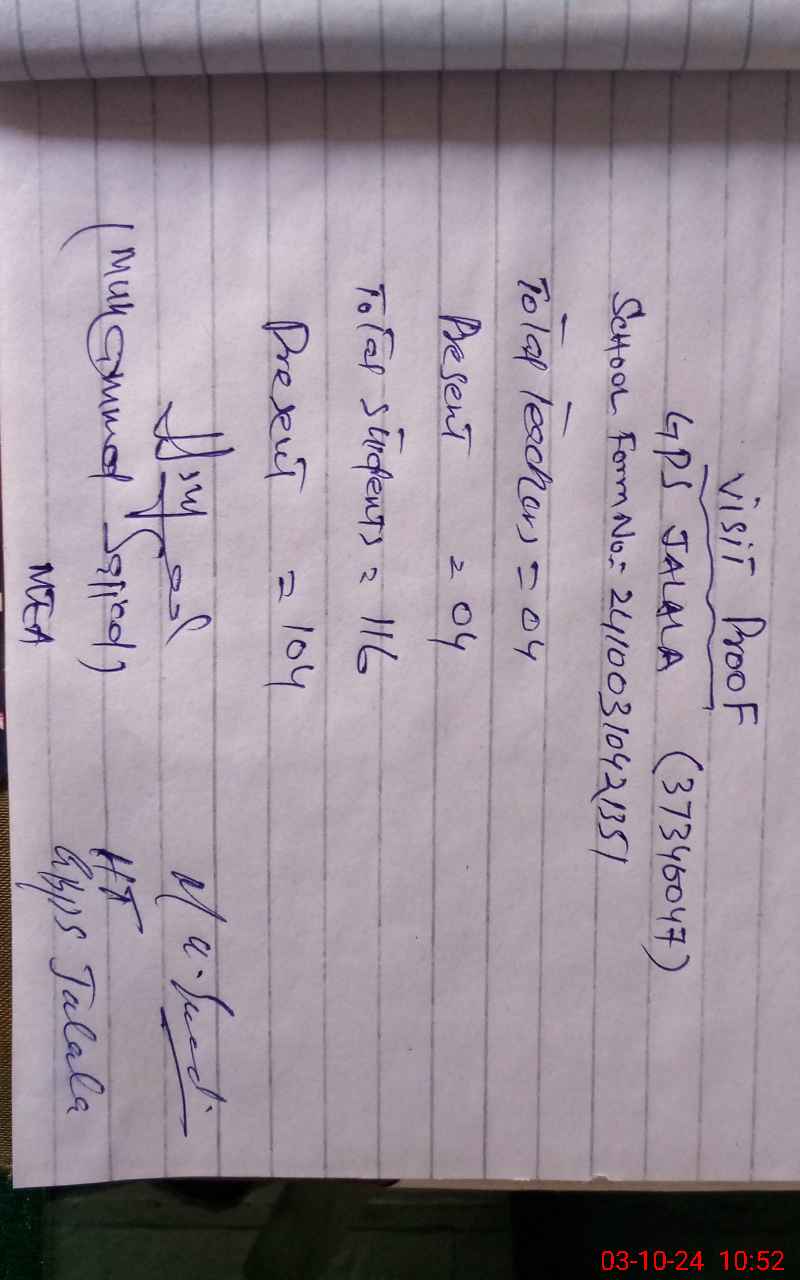 Visit Proof
GPS JALALA (37346047)
School Form No:- 24100310421351
Total teachers = 04
Present = 04
Total students = 116
Present = 104
(Muhammad Sajjad)
MEA
HT
GPS Jalala
03-10-24 10:52